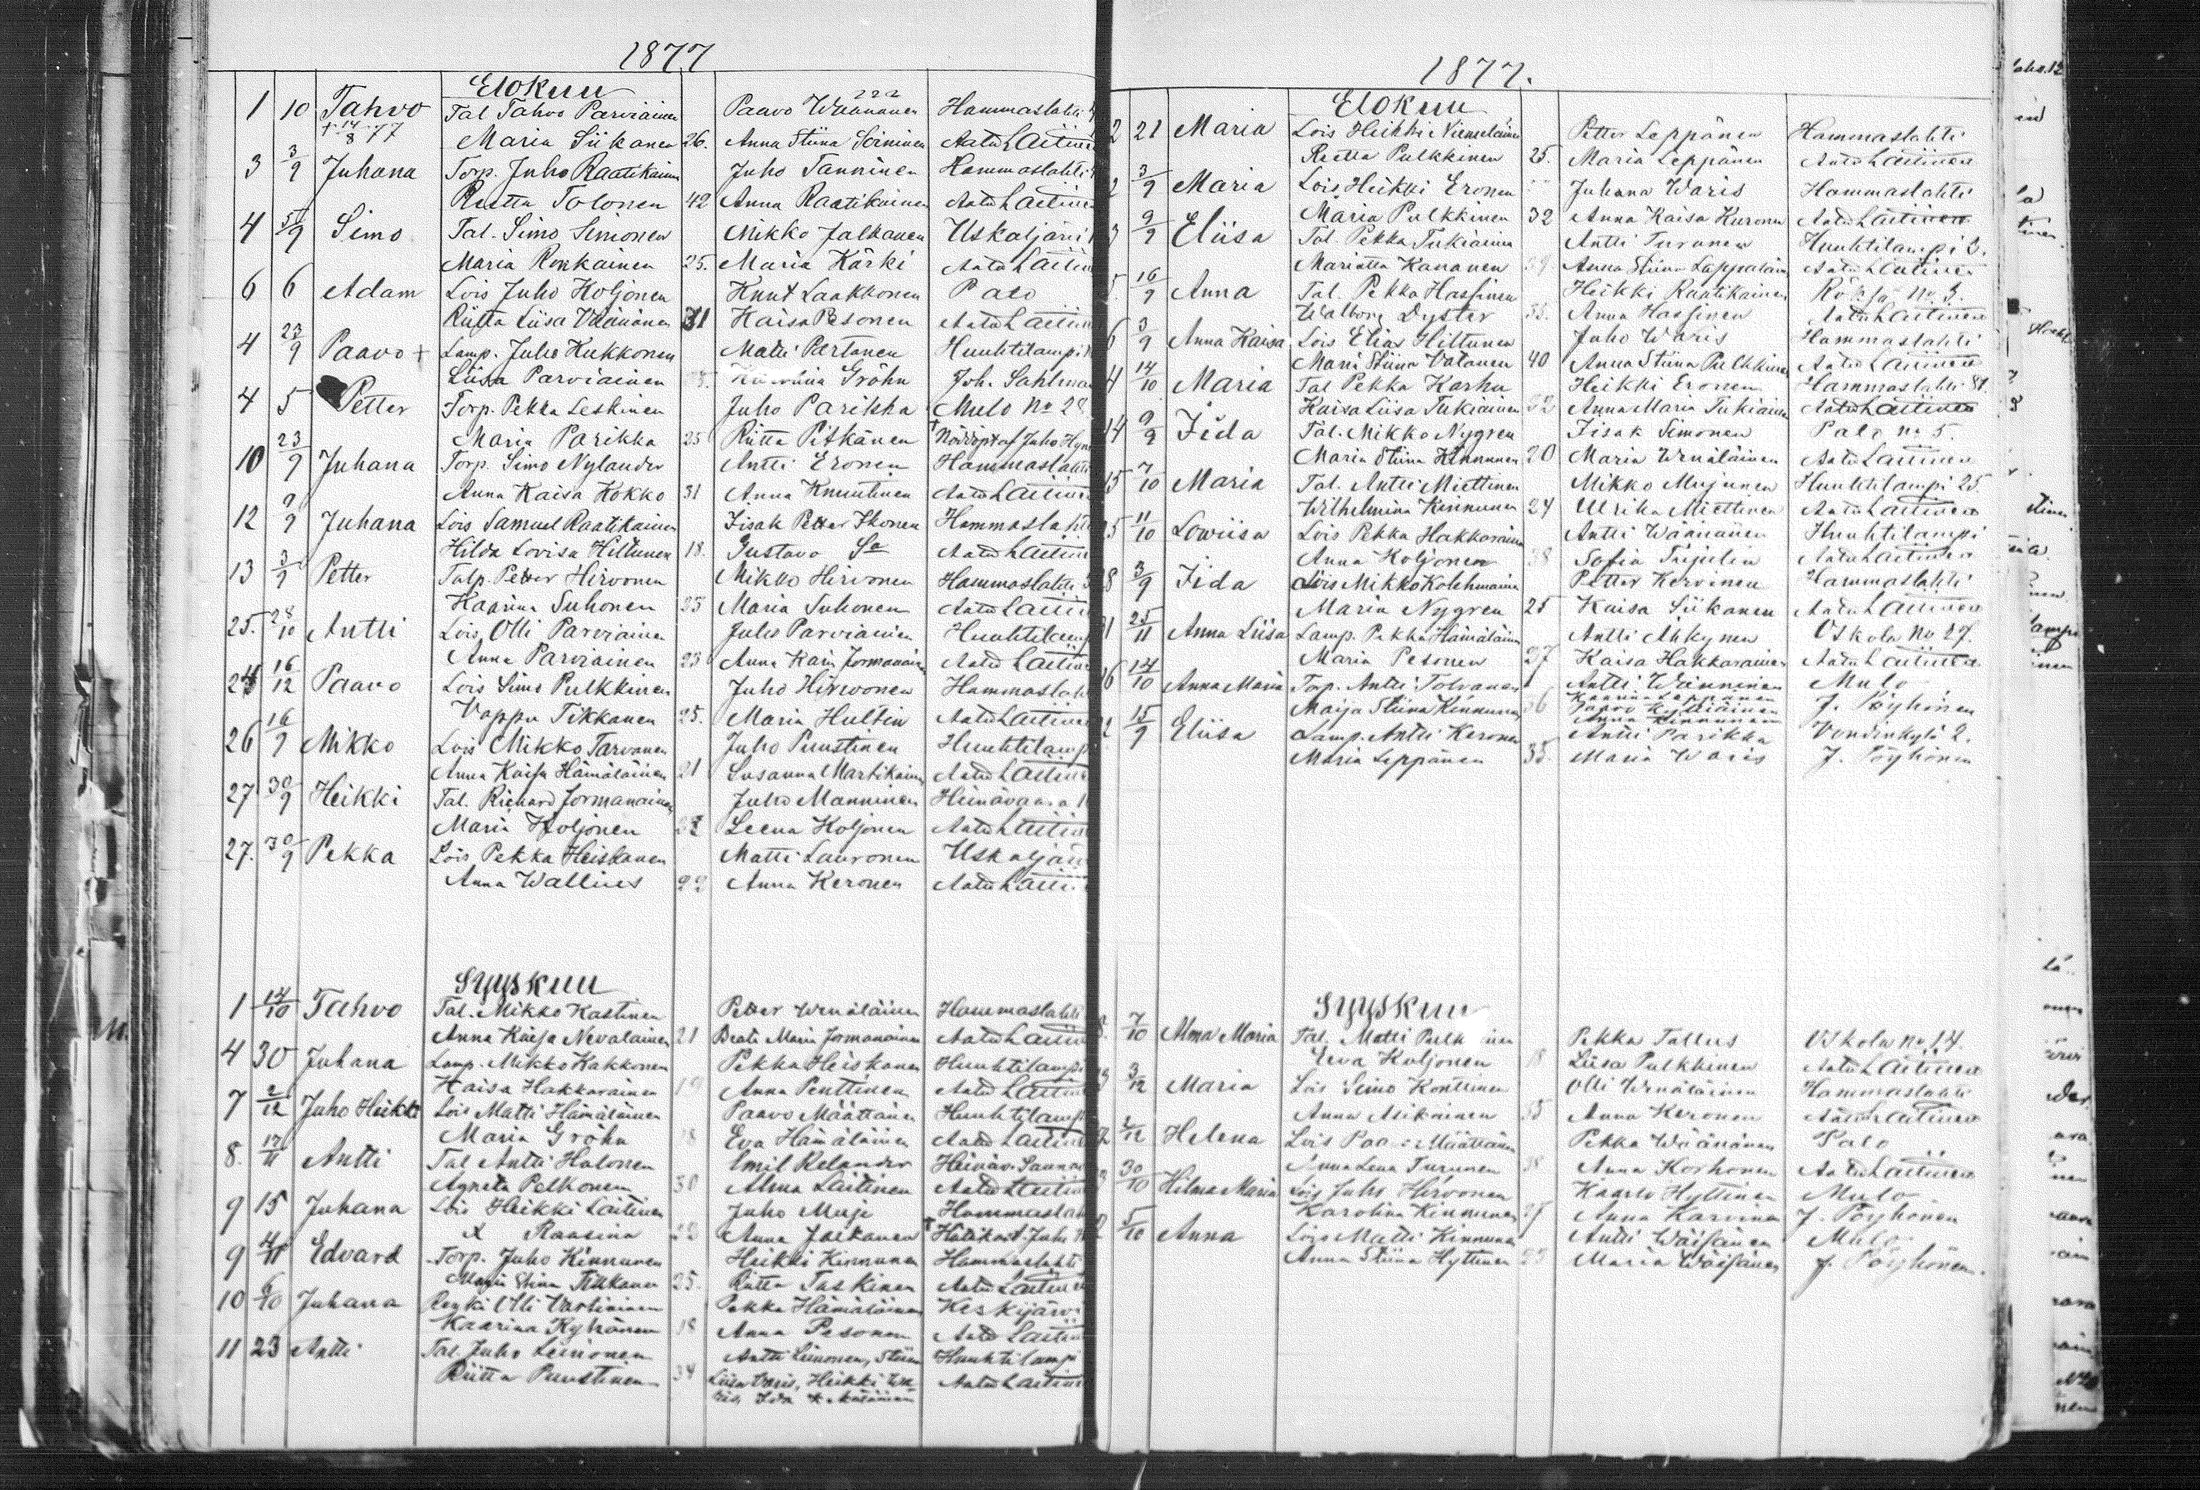 1877
Elokuu
1 10 Tahvo Tal Tahvo Parviainen Paavo Wäänänen Hammaslahti
+ 14/8 77 Maria Siikanen 26. Anna Stiina Soininen Aatu Laitinen
3 3/9 Juhana Torp. Juho Raatikainen Juho Tanninen Hammaslahti
Reetta Tolonen 42 Anna Raatikainen Aatu Laitinen
4 5/9 Simo Tal. Simo Simonen Mikko Jalkanen Uskaljärvi
Maria Ronkainen 25. Maria Kärki Aatu Laitinen
6 6 Adam Lois Juho Koljonen Knut Laakkonen Palo
Riitta Liisa Väänänen 31 Kaisa Pesonen Aatu Laitinen
4 23/9 Paavo + Lamp. Juho Kukkonen Matti Partanen Huuhtilampi
Liisa Parviainen Gröhn Joh. Sahlman
4 5 Petter Torp. Pekka Leskinen Juho Parikka Mulo No 28
Maria Parikka 25 Riitta Pitkänen Nödöpt af Juho
10 23/9 Juhana Torp. Simo Nylander Antti Eronen Hammaslahti
Anna Kaisa Kokko 31 Anna Knuutinen Aatu Laitinen
12 9/9 Juhana Lois Samuel Raatikainen Iisak Petter Ikonen Hammaslahti
Hilda Lovisa Hiltunen 18. Gustava Aatu Laitinen
13 3/9 Petter Talp. Petter Hirvonen Mikko Hirvonen Hammaslahti
Kaarina Suhonen 35 Maria Suhonen Aatu Laitinen
25. 28/10 Antti Lois Olli Parviainen Juho Parviainen Huuhtilampi
Anna Parviainen 23 Anna Kais Jormanainen Aatu Laitinen
24 16/12 Paavo Lois Simo Pulkkinen Juho Hirvonen Hammaslahti
Vappu Tikkanen 25. Maria Hultin Aatu Laitinen
26 16/9 Mikko Lois Mikko Tarvanen Juho Puustinen Huuhtilampi
Anna Kaisa Hämäläinen 21 Susanna Martikainen Aatu Laitinen
27 30/9 Heikki Tal. Richard Jormanainen Juho Manninen Heinävaara
Maria Koljonen Leena Koljonen Aatu Laitinen
27. 30/9 Pekka Lois Pekka Heiskanen Matti Lauronen Uskaljärvi
Anna Wallius 22 Anna Keronen Aatu Laitinen
Syyskuu
1 14/10 Tahvo Tal. Mikko Kastinen Petter Wenäläinen Hammaslahti
Anna Kaisa Nevalainen 21 Beata Maria Jormanainen Aatu Laitinen
4 30 Juhana Lamp. Mikko Kakkonen Pekka Heiskanen Huuhtilampi
Kaisa Hakkarainen 19 Anna Penttinen Aatu Laitinen
7 2/12 Juho Heikki Lois Matti Hämäläinen Paavo Määttänen Huuhtilampi
Maria Gröhn 28 Eva Hämäläinen Aatu Laitinen
8. 17/11 Antti Tal Antti Halonen Emil Relander Heinäv.
Agneta Pelkonen 30 Alma Laitinen Aatu Laitinen
9 15 Juhana Lois Heikki Laitinen Juho Muje Hammaslahti
Anna Jalkanen Hätäkast. Juho
9 4/11 Edvard Torp. Juho Kinnunen Heikki Kinnunen Hammaslahti
Maija Stina Tikkanen 25. Riitta Taskinen Aatu Laitinen
10 6/10 Juhana Olli Vartiainen Pekka Hämäläinen Keskijärvi
Kaarina Kyhönen 18 Anna Pesonen Aatu Laitinen
11 23 Antti Tal. Juho Leinonen Antti Leinonen, Stiina Huuhtilampi
Riitta Puustinen 34 Liisa Varis, Heikki Aatu Laitinen
1877.
Elokuu
2 21 Maria Lois Heikki Niemeläinen Petter Leppänen Hammaslahti
Reetta Pulkkinen 25. Maria Leppänen Aatu Laitinen
2 3/9 Maria Lois Heikki Eronen Juhana Waris Hammaslahti
Maria Pulkkinen 32 Anna Kaisa Kuronen Aatu Laitinen
3 9/9 Eliisa Tal. Pekka Tukiainen Antti Turunen Huuhtilampi 3.
Mariatta Kananen 39 Anna Stiina Lappalainen Aatu Laitinen
5. 16/9 Anna Tal. Pekka Hassinen Heikki Raatikainen No 3.
Walborg Dyster 35. Anna Hassinen Aatu Laitinen
6 3/9 Anna Kaisa Lois Elias Hiltunen Juho Waris Hammaslahti
Maria Stiina Vatanen 40 Anna Stiina Pulkkinen Aatu Laitinen
4 14/10 Maria Tal Pekka Karhu Heikki Eronen Hammaslahti
Kaisa Liisa Tukiainen 32 Anna Maria Tukiainen Aatu Laitinen
14 9/9 Iida Tal. Mikko Nygren Iisak Simonen Palo no 5.
Maria Stiina Kinnunen 20 Maria Wenäläinen Aatu Laitinen
15 7/10 Maria Tal. Antti Miettinen Mikko Mujunen Huuhtilampi 25.
Wilhelmina Kinnunen 24 Ulrika Miettinen Aatu Laitinen
25 11/10 Lowiisa Lois Pekka Hakkarainen Antti Wäänänen Huuhtilampi
Anna Koljonen 38 Sofia Aatu Laitinen
28 3/9 Iida Lois Mikko Kolehmainen Petter Kervinen Hammaslahti
Maria Nygren 25 Kaisa Siikanen Aatu Laitinen
31 25/11 Anna Liisa Lamp. Pekka Hämäläinen Antti Uskola No 27.
Maria Pesonen 27 Kaisa Hakkarainen Aatu Laitinen
16 14/10 Anna Maria Torp. Antti Tolvanen Antti Wänninen Mulo
Maija Stiina Kinnunen 26 J. Pöyhönen
15/9 Eliisa Lamp. Antti Keronen Antti Parikka 2.
Maria Leppänen 35. Maria Waris J. Pöyhönen
Syyskuu
8. 7/10 Alma Maria Tal. Matti Pekka Tallus Uskola no 14
Eeva Koljonen 18 Liisa Pulkkinen Aatu Laitinen
3/12 Maria Lois Simo Konttinen Olli Wenäläinen Hammaslahti
Anna Asikainen 35 Anna Keronen Aatu Laitinen
2/12 Helena Lois Määttänen Pekka Wäänänen Palo
Anna Lena Turunen 38 Anna Korhonen Aatu Laitinen
30/10 Hilma Maria Lois Juho Hirvonen Kaarlo Hyttinen Mulo
Karolina Kinnunen Anna Karvinen J. Pöyhönen
5/10 Anna Lois Matti Kinnunen Antti Wäisänen Mulo
Anna Stiina Hyttinen Maria Wäisänen J. Pöyhönen.